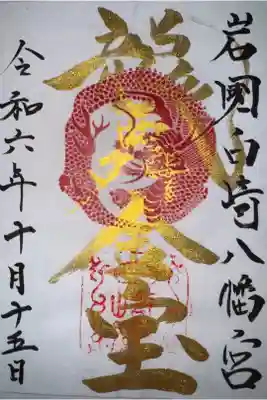 岩國白崎八幡宮
龍
宝
令和六年十月十五日